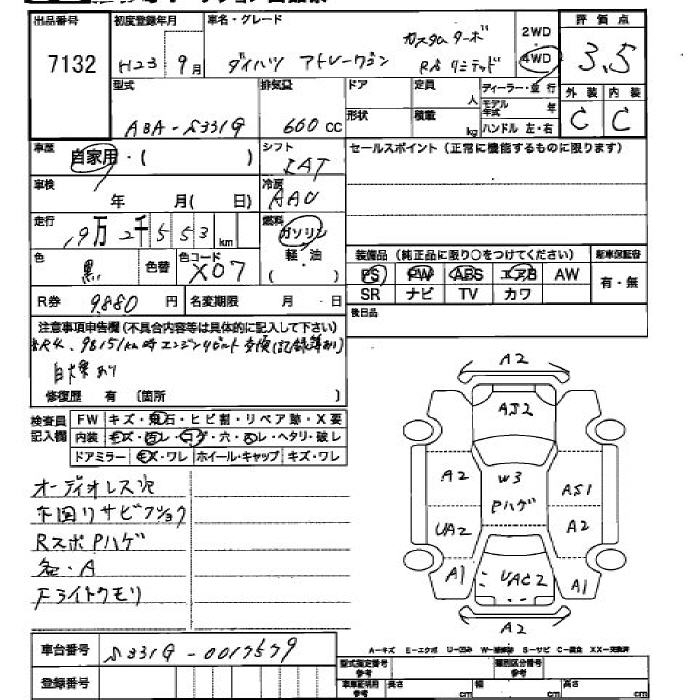 出品番号 初度登録年月 車名・グレード 評価点
7132 H23 9月 ダイハツ アトレーワゴン カスタムターボ 2WD 3.5
RS リミテッド 4WD
型式 排気量 ドア 定員 人 ディーラー・並行 外装 内装
ABA-S331G 660cc 形状 積載 kg モデル年式 年 C C
ハンドル 左・右
車歴 自家用・( ) シフト セールスポイント(正常に機能するものに限ります)
車検 年 月( 日) 冷房 AAC
走行 km 燃料 ガソリン
色 黒 色替 色コード X07 軽・油 ( )
装備品(純正品に限り○をつけてください) 新車保証書
PS PW ABS エアB AW 有・無
SR ナビ TV カワ
R券 9,880円 名変期限 月 日 後日品
注意事項申告欄(不具合内容等は具体的に記入して下さい)
98151km時エンジンリビルト交換(記録簿あり)
修復歴 有 〔箇所 〕
検査員記入欄 FW キズ・飛石・ヒビ割・リペア跡・X要
内装 キズ・汚レ・コゲ・穴・スレ・ヘタリ・破レ
ドアミラー キズ・ワレ ホイール・キャップ キズ・ワレ
オーディオレス
下回りサビフショク
RスポPハゲ
A
Fライトクモリ
A2
A52
A2 W3 A51
Pハゲ
UA2 A2
A1 UAC2 A1
A2
車台番号 S331G-0017579
登録番号
A-キズ E-エクボ U-凹み W-補修跡 S-サビ C-腐食 XX-交換済
型式指定番号 類別区分番号
車庫証明用 長さ cm 幅 cm 高さ cm